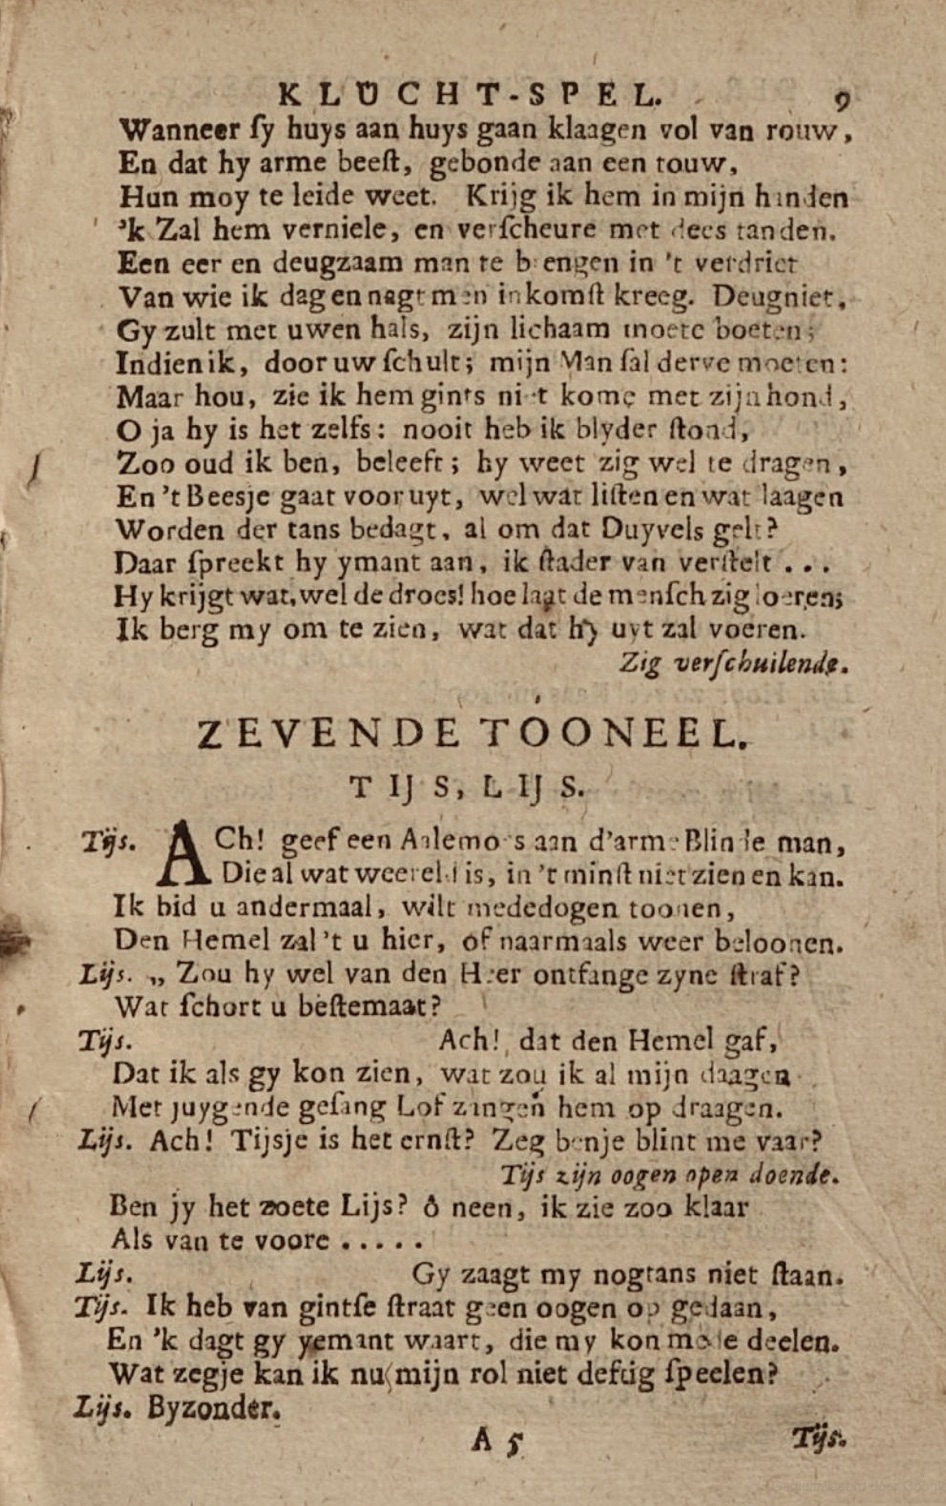 KLUCHT-SPEL. 9
Wanneer ſy huys aan huys gaan klaagen vol van rouw,
En dat hy arme beeſt, gebonde aan een touw,
Hun moy te leide weet. Krijg ik hem in mijn handen
'k Zal hem verniele, en verſcheure met dees tanden.
Een eer en deugzaam man te brengen in 't verdriet
Van wie ik dag en nagt men inkomſt kreeg. Deugniet,
Gy zult met uwen hals, zijn lichaam moete boeten;
Indien ik, door uw ſchult; mijn Man ſal derve moeten:
Maar hou, zie ik hem gints niet kome met zijn hond,
O ja hy is het zelfs: nooit heb ik blyder ſtond,
Zoo oud ik ben, beleeft; hy weet zig wel te dragen,
En 't Beesje gaat voor uyt, wel wat liſten en wat laagen
Worden der tans bedagt, al om dat Duyvels gelt?
Daar ſpreekt hy ymant aan, ik ſtader van verſtelt ...
Hy krijgt wat, wel de droes! hoe laat de menſch zig loeren;
Ik berg my om te zien, wat dat hy uyt zal voeren.
Zig verſchuilende.
ZEVENDE TOONEEL.
TIJS, LIJS.
Tijs. ACh! geef een Aalemoes aan d'arme Blinde man,
Die al wat weereld is, in 't minſt niet zien en kan.
Ik bid u andermaal, wilt mededogen toonen,
Den Hemel zal 't u hier, of naarmaals weer beloonen.
Lijs. „ Zou hy wel van den Heer ontfange zyne ſtraf?
Wat ſchort u beſtemaat?
Tijs. Ach! dat den Hemel gaf,
Dat ik als gy kon zien, wat zou ik al mijn daagen
Met juygende geſang Lof zangen hem op draagen.
Lijs. Ach! Tijsje is het ernſt? Zeg benje blint me vaar?
Tijs zijn oogen open doende.
Ben jy het zoete Lijs? ô neen, ik zie zoo klaar
Als van te voore .....
Lijs. Gy zaagt my nogtans niet ſtaan.
Tijs. Ik heb van gintſe ſtraat geen oogen op gedaan,
En 'k dagt gy yemant waart, die my kon mede deelen.
Wat zegje kan ik nu mijn rol niet deftig ſpeelen?
Lijs. Byzonder.
A 5 Tijs.